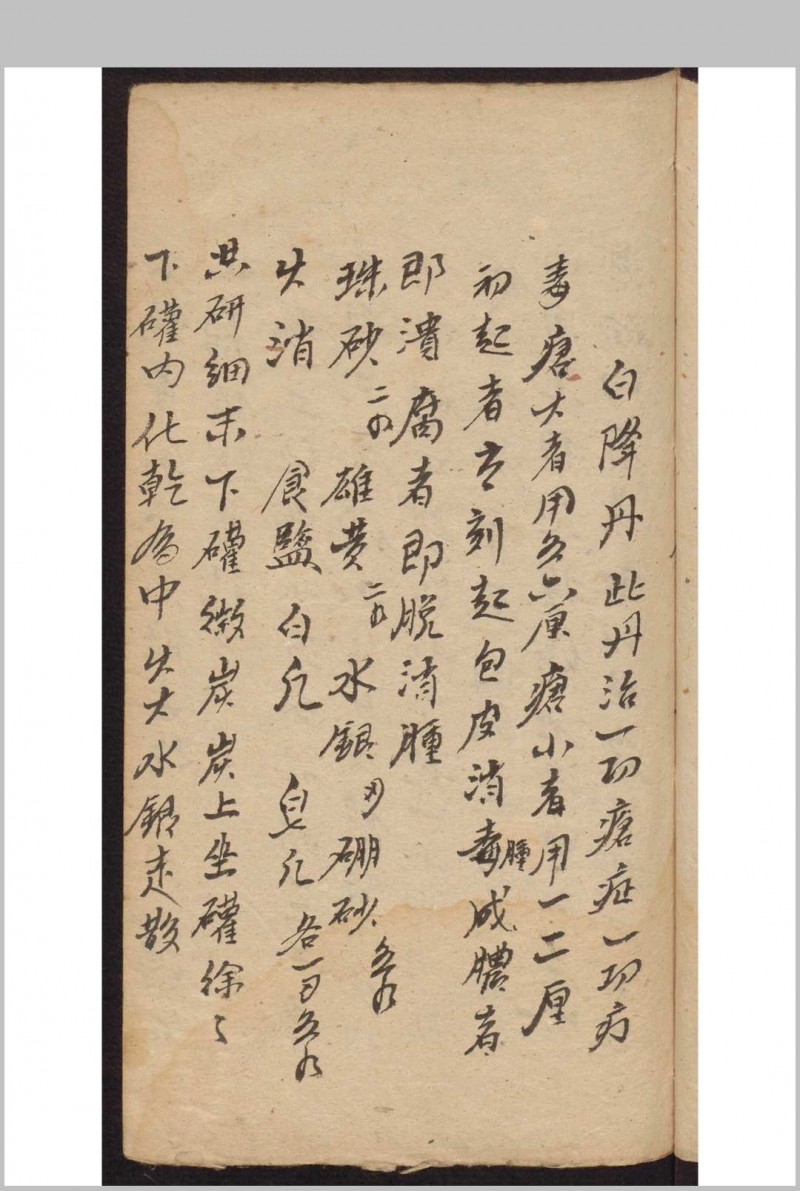 白降丹 此丹治一切瘡症一切疔
毒瘡大者用五六厘瘡小者用一二厘
初起者立刻起包皮消毒腫成膿者
即潰腐者即脫消腫
珠砂二个 雄黄二个 水銀 硼砂
火消 食鹽 白凡 皂凡 各一
共研細末下礶微炭炭上坐礶徐〻
下礶内化乾為中火大水銀走散